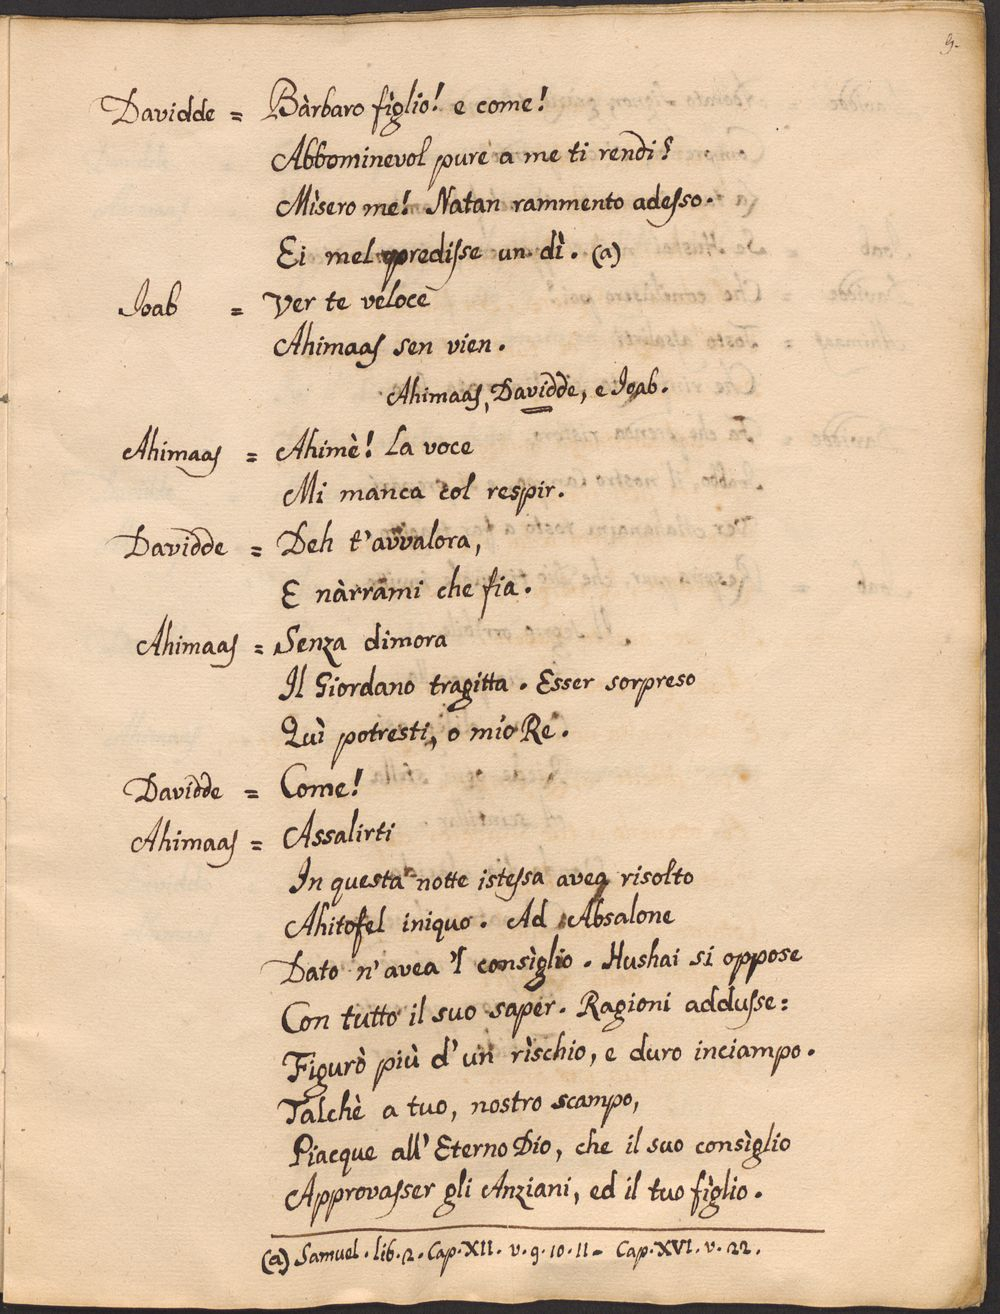 9.
Davidde = Bàrbaro fìglio! e come!
Abbominevol pure a me ti rendi?
Mìsero me! Natan rammento adesso.
Ei mel predisse un dì. (a)
Joab = Ver te veloce
Ahimaas sen vien.
Ahimaas, Davidde, e Joab.
Ahimaas = Ahimè! La voce
Mi manca col respir.
Davidde = Deh t'avvalora,
E nàrrami che fia.
Ahimaas = Senza dimora
Il Giordano tragitta. Esser sorpreso
Quì potresti, o mio Re.
Davidde = Come!
Ahimaas = Assalirti
In questa notte istessa avea risolto
Ahitofel iniquo. Ad Absalone
Dato n'avea 'l consìglio. Hushai si oppose
Con tutto il suo saper. Ragioni addusse:
Figurò più d'un rìschio, e duro inciampo.
Talchè a tuo, nostro scampo,
Piacque all'Eterno Dio, che il suo consìglio
Approvasser gli Anziani, ed il tuo fìglio.
(a) Samuel. lib. 2. Cap. XII. v. 9. 10. 11 - Cap. XVI. v. 22.